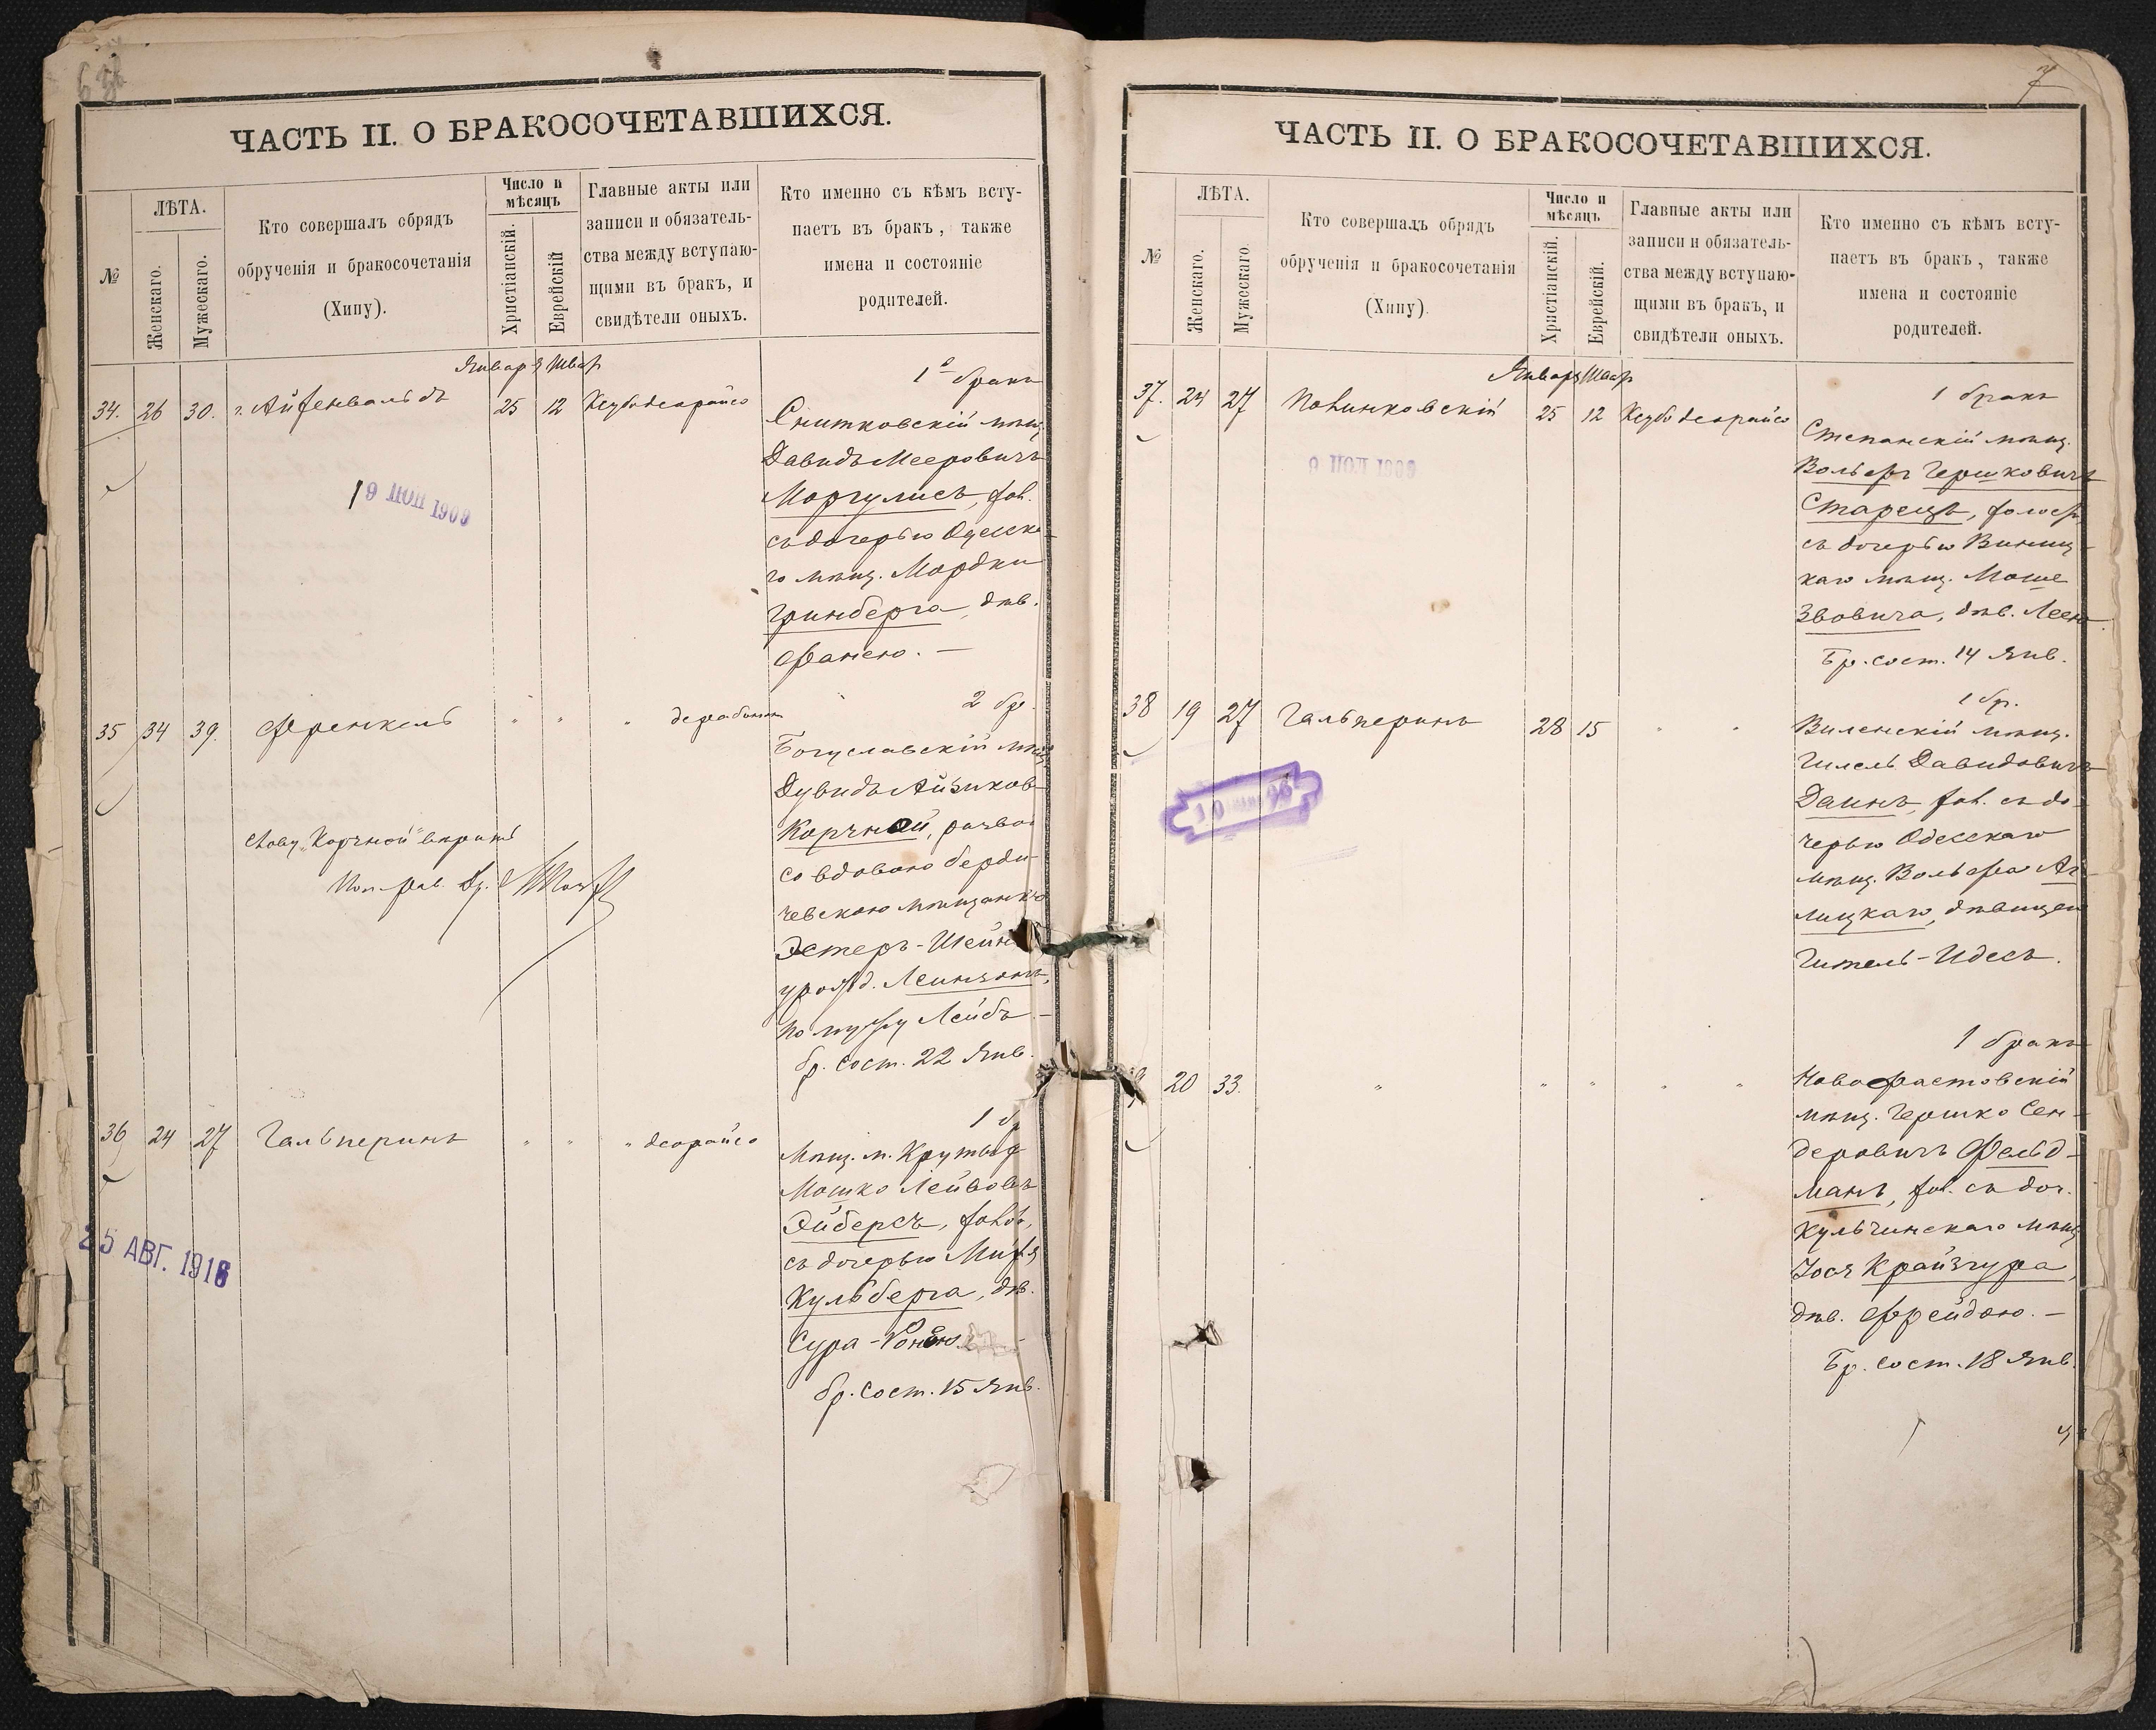 ЧАСТЬ II. О БРАКОСОЧЕТАВШИХСЯ.
№
ЛѢТА.
Женскаго.
Мужескаго.
Кто совершалъ обрядъ
обрученія и бракосочетанія
(Хипу).
Число и
мѣсяцъ
Христіанскій.
Еврейскій
Главные акты или
записи и обязатель-
ства между вступаю-
щими въ бракъ, и
свидѣтели оныхъ.
Кто именно съ кѣмъ всту-
паетъ въ бракъ, также
имена и состояніе
родителей.
Января Шват
34. 26 30. г. Айзенвальдъ 25 12 Ксубо деорайсо
1й бракъ
Снитковскій мѣщ.
Давидъ Мееровичъ
Моргулисъ, хол.
съ дочерью Одесска-
го мѣщ. Мордки
Гринберга, дѣв.
Фанею. —
19 ІЮН 1909
35 34 39. Френкель " " " дерабонон
2 бр.
Богуславскій мѣщ.
Дувидъ Айзиков.
Корчной, развод.
со вдовою Берди-
чевскою мѣщанкою
Эстеръ-Шейн
урожд. Лейнзонъ,
по мужу Лейбъ. —
бр. сост. 22 Янв.
Слову "Корчной" вѣрить
36 24 27 Гальперинъ " " " деорайсо
1 бр
Мѣщ. м. Крутыхъ
Мошко Лейбовъ
Эйберсъ, холос.,
съ дочерью
Кульберга, дѣв.
Сура-
бр. сост. 15 Янв.
25 АВГ. 1916
7
ЧАСТЬ II. О БРАКОСОЧЕТАВШИХСЯ.
№
ЛѢТА.
Женскаго.
Мужескаго.
Кто совершалъ обрядъ
обрученія и бракосочетанія
(Хипу).
Число и
мѣсяцъ
Христіанскій.
Еврейскій.
Главные акты или
записи и обязатель-
ства между вступаю-
щими въ бракъ, и
свидѣтели оныхъ.
Кто именно съ кѣмъ всту-
паетъ въ бракъ, также
имена и состояніе
родителей.
Января Шват
37. 24 27 Повинковскій 25 12 Ксубо деорайсо
1 бракъ
Степанскій мѣщ.
Вольфъ Гершковичъ
Старецъ, холост.
съ дочерью Винниц-
каго мѣщ. Моше
Звовича, дѣв. Леею
Бр. сост. 14 Янв.
9 ІЮЛ 1909
38 19 27 Гальперинъ 28 15 " "
1 бр.
Виленскій мѣщ.
Гилель Давидовичъ
Даинъ, хол. съ до-
черью Одесскаго
мѣщ. Вольфа
лицкаго, дѣвицею
Гитель-Идесъ.
20 33. " " " " "
1 бракъ
Новофастовскій
мѣщ. Гершко Сен-
деровичъ Фельд-
манъ, хол. съ доч.
Кульчинскаго мѣщ.
Іося Крайзгура,
дѣв. Фрейдою. —
Бр. сост. 18 Янв.